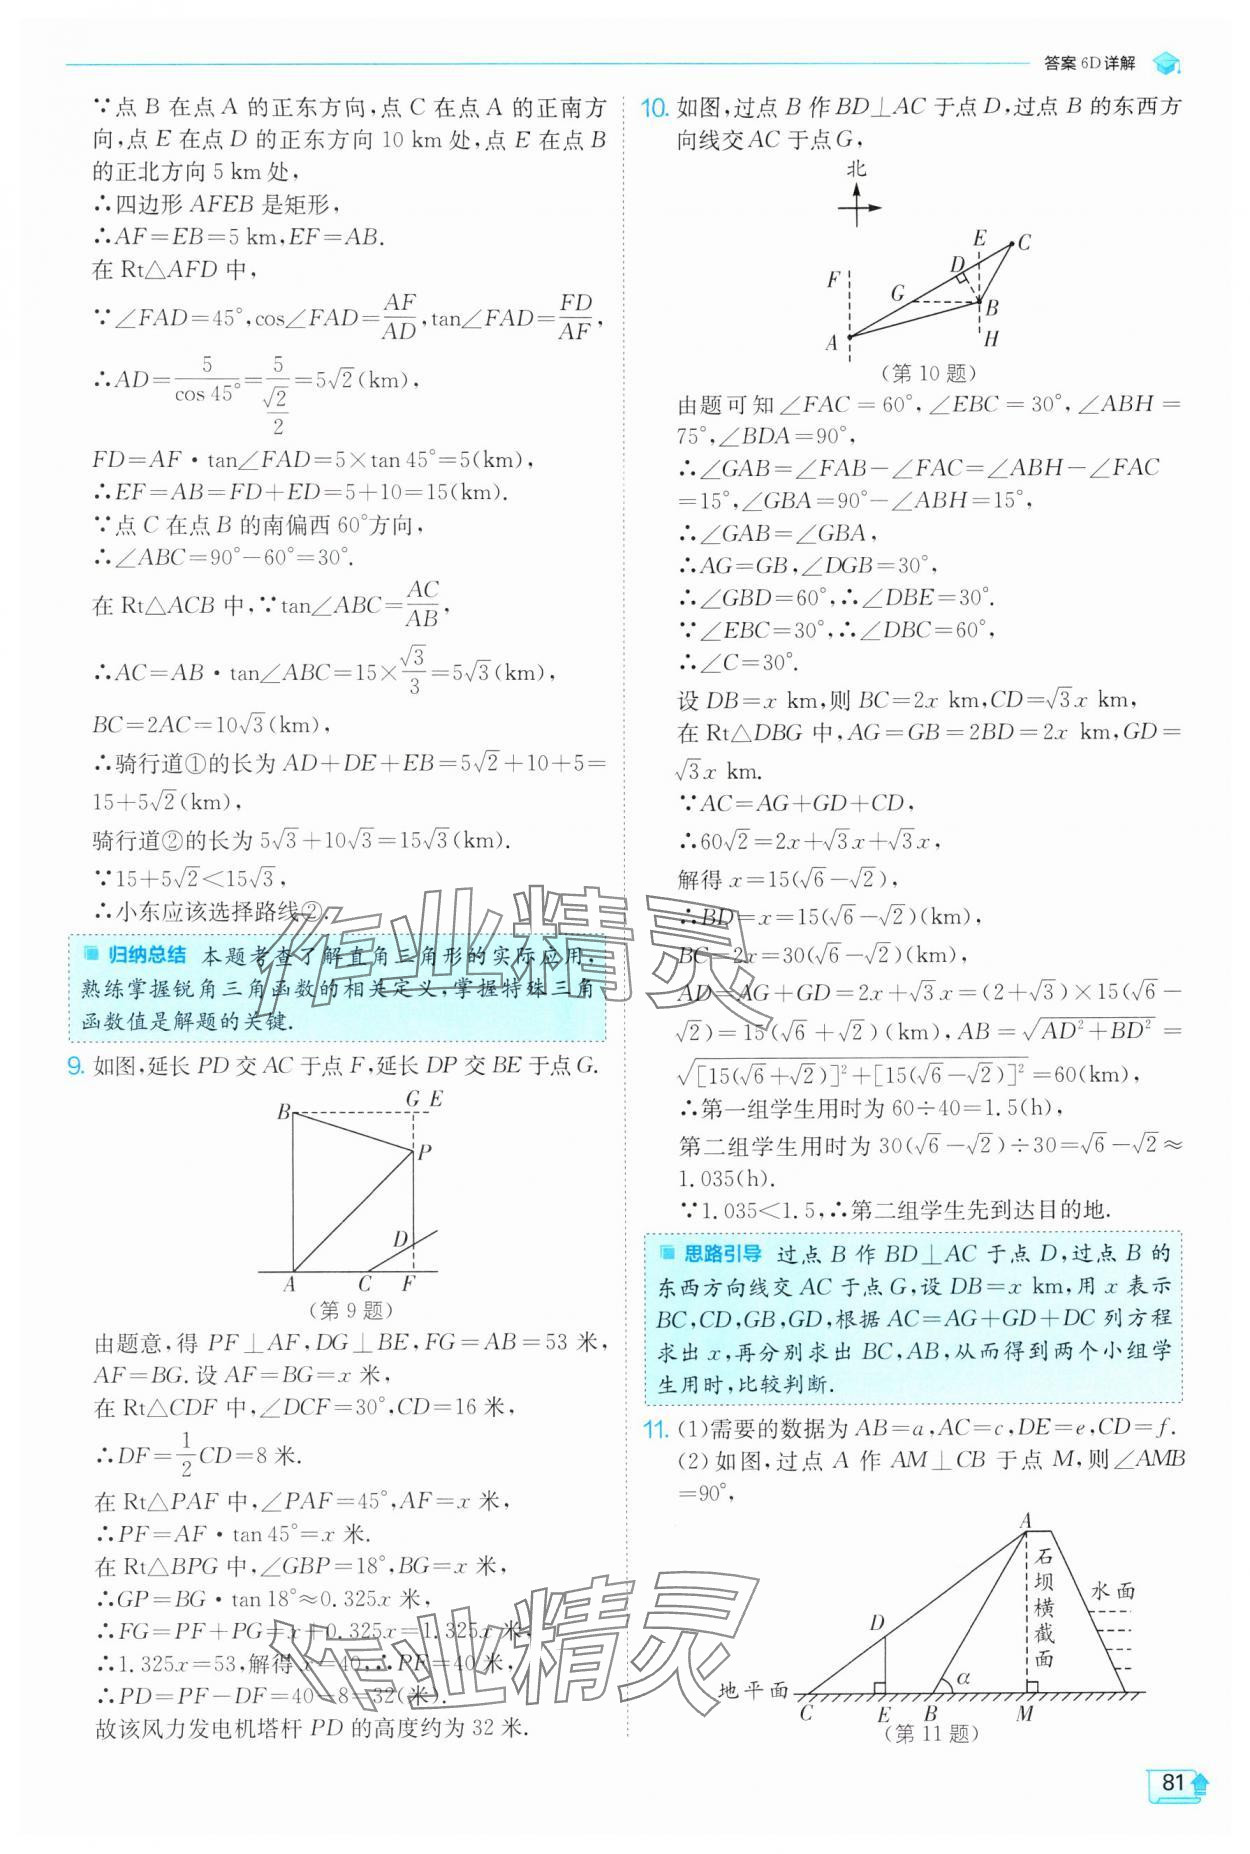 答案 6D 详解
∵点 B 在点 A 的正东方向,点 C 在点 A 的正南方
向,点 E 在点 D 的正东方向 10 km 处,点 E 在点 B
的正北方向 5 km 处,
∴四边形 AFEB 是矩形,
∴AF=EB=5 km,EF=AB.
在 Rt△AFD 中,
∵∠FAD=45°,cos∠FAD=AF/AD,tan∠FAD=FD/AF,
∴AD=5/cos 45°=5/(√2/2)=5√2(km),
FD=AF·tan∠FAD=5×tan 45°=5(km),
∴EF=AB=FD+ED=5+10=15(km).
∵点 C 在点 B 的南偏西 60°方向,
∴∠ABC=90°-60°=30°.
在 Rt△ACB 中,∵tan∠ABC=AC/AB,
∴AC=AB·tan∠ABC=15×√3/3=5√3(km),
BC=2AC=10√3(km),
∴骑行道①的长为 AD+DE+EB=5√2+10+5=
15+5√2(km),
骑行道②的长为 5√3+10√3=15√3(km).
∵15+5√2<15√3,
∴小东应该选择路线②.
归纳总结 本题考查了解直角三角形的实际应用,
熟练掌握锐角三角函数的相关定义,掌握特殊三角
函数值是解题的关键.
9. 如图,延长 PD 交 AC 于点 F,延长 DP 交 BE 于点 G.
B G E
P
D
A C F
(第 9 题)
由题意,得 PF⊥AF,DG⊥BE,FG=AB=53 米,
AF=BG. 设 AF=BG=x 米,
在 Rt△CDF 中,∠DCF=30°,CD=16 米,
∴DF=1/2CD=8 米.
在 Rt△PAF 中,∠PAF=45°,AF=x 米,
∴PF=AF·tan 45°=x 米.
在 Rt△BPG 中,∠GBP=18°,BG=x 米,
∴GP=BG·tan 18°≈0.325x 米,
∴FG=PF+PG=x+0.325x=1.325x 米,
∴1.325x=53,解得 x=40,∴PF=40 米,
∴PD=PF-DF=40-8=32(米).
故该风力发电机塔杆 PD 的高度约为 32 米.
10. 如图,过点 B 作 BD⊥AC 于点 D,过点 B 的东西方
向线交 AC 于点 G,
北
E C
F D
G B
A H
(第 10 题)
由题可知∠FAC=60°,∠EBC=30°,∠ABH=
75°,∠BDA=90°,
∴∠GAB=∠FAB-∠FAC=∠ABH-∠FAC
=15°,∠GBA=90°-∠ABH=15°,
∴∠GAB=∠GBA,
∴AG=GB,∠DGB=30°,
∴∠GBD=60°,∴∠DBE=30°.
∵∠EBC=30°,∴∠DBC=60°,
∴∠C=30°.
设 DB=x km,则 BC=2x km,CD=√3x km,
在 Rt△DBG 中,AG=GB=2BD=2x km,GD=
√3x km.
∵AC=AG+GD+CD,
∴60√2=2x+√3x+√3x,
解得 x=15(√6-√2),
∴BD=x=15(√6-√2)(km),
BC=2x=30(√6-√2)(km),
AD=AG+GD=2x+√3x=(2+√3)×15(√6-
√2)=15(√6+√2)(km),AB=√(AD²+BD²)=
√([15(√6+√2)]²+[15(√6-√2)]²)=60(km),
∴第一组学生用时为 60÷40=1.5(h),
第二组学生用时为 30(√6-√2)÷30=√6-√2≈
1.035(h).
∵1.035<1.5,∴第二组学生先到达目的地.
思路引导 过点 B 作 BD⊥AC 于点 D,过点 B 的
东西方向线交 AC 于点 G,设 DB=x km,用 x 表示
BC,CD,GB,GD,根据 AC=AG+GD+DC 列方程
求出 x,再分别求出 BC,AB,从而得到两个小组学
生用时,比较判断.
11. (1)需要的数据为 AB=a,AC=c,DE=e,CD=f.
(2)如图,过点 A 作 AM⊥CB 于点 M,则∠AMB
=90°,
A
石坝横截面
水面
D
α
地平面
C E B M
(第 11 题)
81
作业精灵
作业精灵